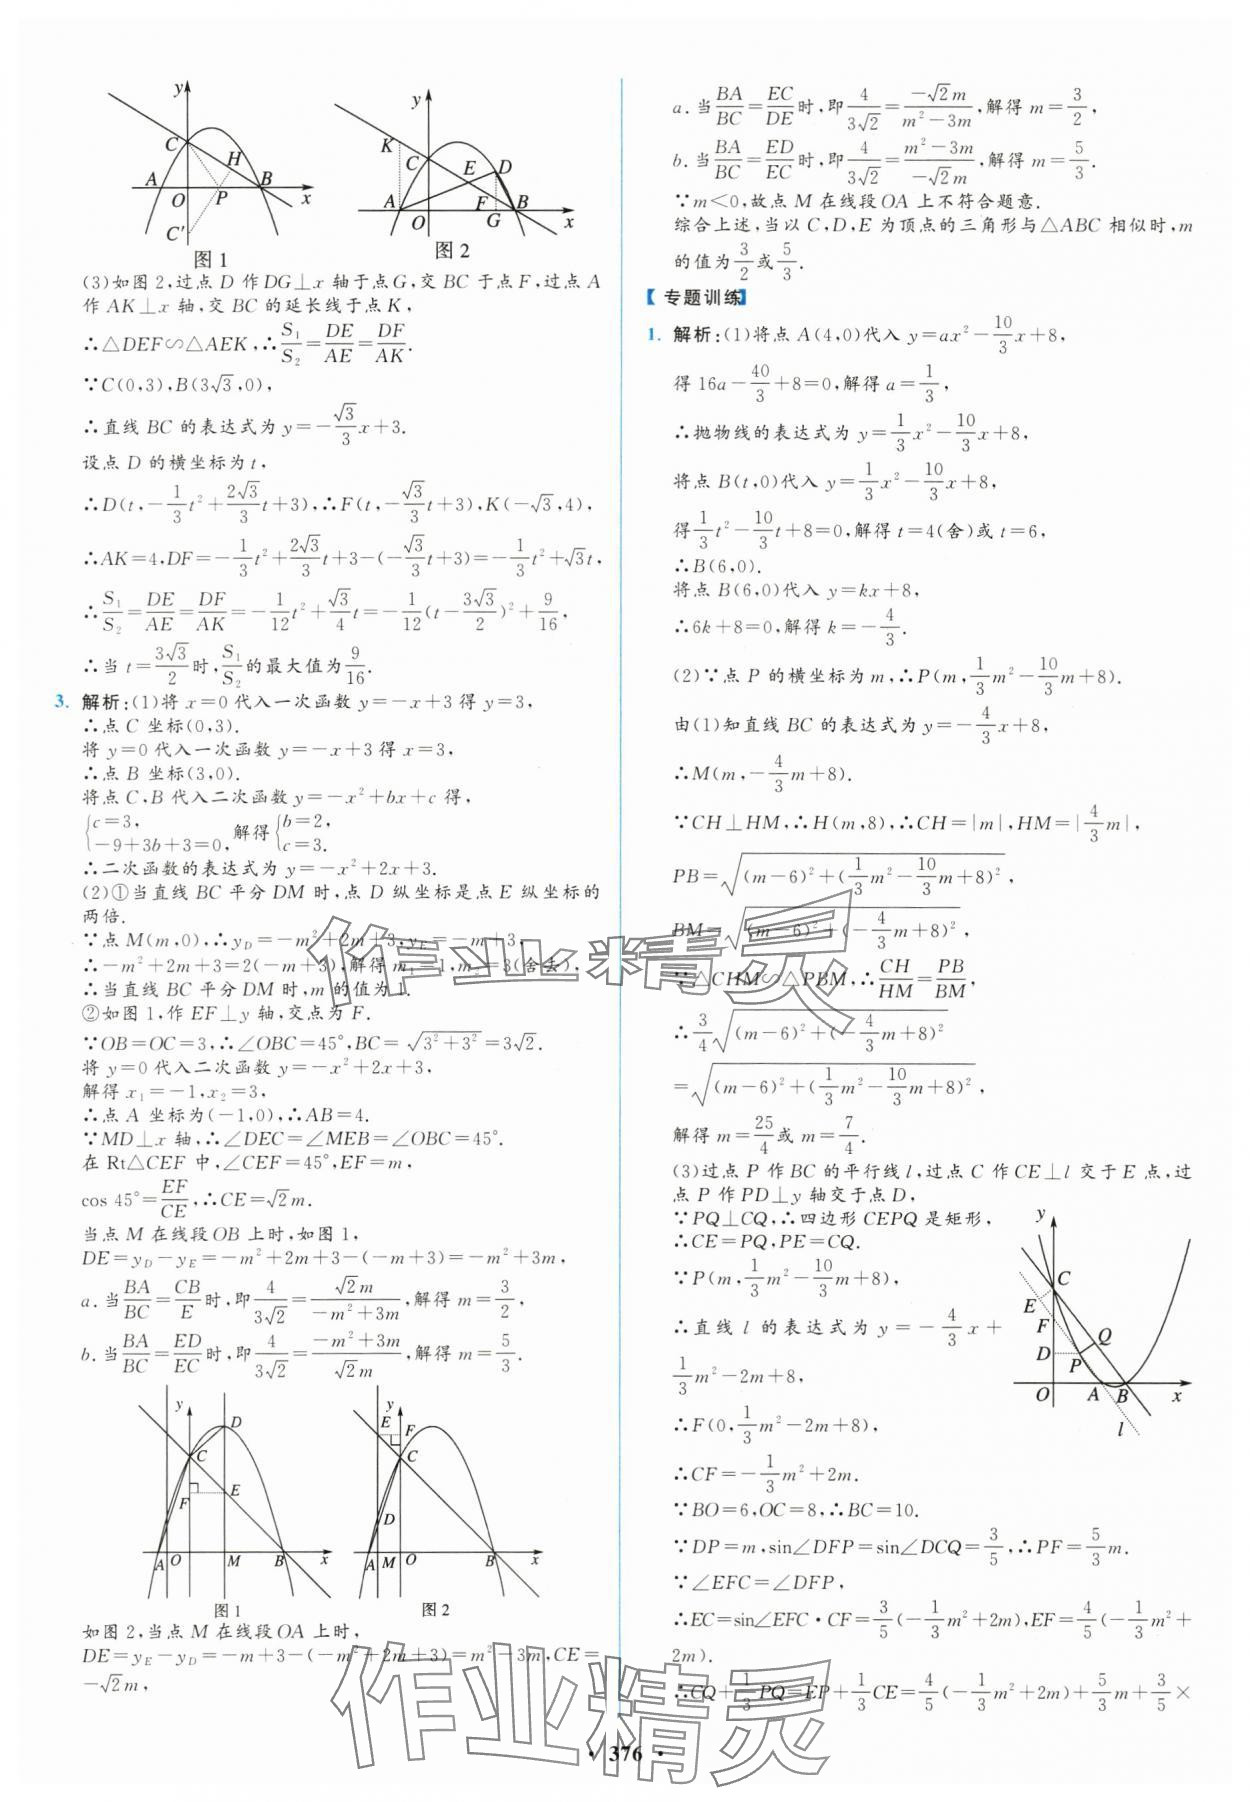 图1
图2
(3)如图2,过点D作DG⊥x轴于点G,交BC于点F,过点A
作AK⊥x轴,交BC的延长线于点K,
∴△DEF∽△AEK,∴S₁/S₂=DE/AE=DF/AK.
∵C(0,3),B(3√3,0),
∴直线BC的表达式为y=-√3/3x+3.
设点D的横坐标为t,
∴D(t,-1/3t²+2√3/3t+3),∴F(t,-√3/3t+3),K(-√3,4),
∴AK=4,DF=-1/3t²+2√3/3t+3-(-√3/3t+3)=-1/3t²+√3t,
∴S₁/S₂=DE/AE=DF/AK=-1/12t²+√3/4t=-1/12(t-3√3/2)²+9/16,
∴当t=3√3/2时,S₁/S₂的最大值为9/16.
3. 解析:(1)将x=0代入一次函数y=-x+3得y=3,
∴点C坐标(0,3).
将y=0代入一次函数y=-x+3得x=3,
∴点B坐标(3,0).
将点C,B代入二次函数y=-x²+bx+c得,
{c=3, -9+3b+3=0, 解得{b=2, c=3.
∴二次函数的表达式为y=-x²+2x+3.
(2)①当直线BC平分DM时,点D纵坐标是点E纵坐标的
两倍.
∵点M(m,0),∴y_D=-m²+2m+3,y_E=-m+3,
∴-m²+2m+3=2(-m+3),解得m₁=1,m₂=3(舍去),
∴当直线BC平分DM时,m的值为1.
②如图1,作EF⊥y轴,交点为F.
∵OB=OC=3,∴∠OBC=45°,BC=√(3²+3²)=3√2.
将y=0代入二次函数y=-x²+2x+3,
解得x₁=-1,x₂=3,
∴点A坐标为(-1,0),∴AB=4.
∵MD⊥x轴,∴∠DEC=∠MEB=∠OBC=45°.
在Rt△CEF中,∠CEF=45°,EF=m,
cos 45°=EF/CE,∴CE=√2m.
当点M在线段OB上时,如图1,
DE=y_D-y_E=-m²+2m+3-(-m+3)=-m²+3m,
a.当BA/BC=CB/E时,即4/3√2=√2m/(-m²+3m),解得m=3/2,
b.当BA/BC=ED/EC时,即4/3√2=(-m²+3m)/√2m,解得m=5/3.
图1
图2
如图2,当点M在线段OA上时,
DE=y_E-y_D=-m+3-(-m²+2m+3)=m²-3m,CE=
-√2m,
a.当BA/BC=EC/DE时,即4/3√2=-√2m/(m²-3m),解得m=3/2,
b.当BA/BC=ED/EC时,即4/3√2=(m²-3m)/-√2m,解得m=5/3.
∵m<0,故点M在线段OA上不符合题意.
综合上述,当以C,D,E为顶点的三角形与△ABC相似时,m
的值为3/2或5/3.
【专题训练】
1. 解析:(1)将点A(4,0)代入y=ax²-10/3x+8,
得16a-40/3+8=0,解得a=1/3,
∴抛物线的表达式为y=1/3x²-10/3x+8,
将点B(t,0)代入y=1/3x²-10/3x+8,
得1/3t²-10/3t+8=0,解得t=4(舍)或t=6,
∴B(6,0).
将点B(6,0)代入y=kx+8,
∴6k+8=0,解得k=-4/3.
(2)∵点P的横坐标为m,∴P(m,1/3m²-10/3m+8).
由(1)知直线BC的表达式为y=-4/3x+8,
∴M(m,-4/3m+8).
∵CH⊥HM,∴H(m,8),∴CH=|m|,HM=|4/3m|,
PB=√((m-6)²+(1/3m²-10/3m+8)²),
BM=√((m-6)²+(-4/3m+8)²),
∵△CHM∽△PBM,∴CH/HM=PB/BM,
∴3/4√((m-6)²+(-4/3m+8)²)
=√((m-6)²+(1/3m²-10/3m+8)²),
解得m=25/4或m=7/4.
(3)过点P作BC的平行线l,过点C作CE⊥l交于E点,过
点P作PD⊥y轴交于点D,
∵PQ⊥CQ,∴四边形CEPQ是矩形,
∴CE=PQ,PE=CQ.
∵P(m,1/3m²-10/3m+8),
∴直线l的表达式为y=-4/3x+
1/3m²-2m+8,
∴F(0,1/3m²-2m+8),
∴CF=-1/3m²+2m.
∵BO=6,OC=8,∴BC=10.
∵DP=m,sin∠DFP=sin∠DCQ=3/5,∴PF=5/3m.
∵∠EFC=∠DFP,
∴EC=sin∠EFC·CF=3/5(-1/3m²+2m),EF=4/5(-1/3m²+
2m).
∴CQ+1/3PQ=EP+1/3CE=4/5(-1/3m²+2m)+5/3m+3/5×
作业精灵
作业精灵
·376·